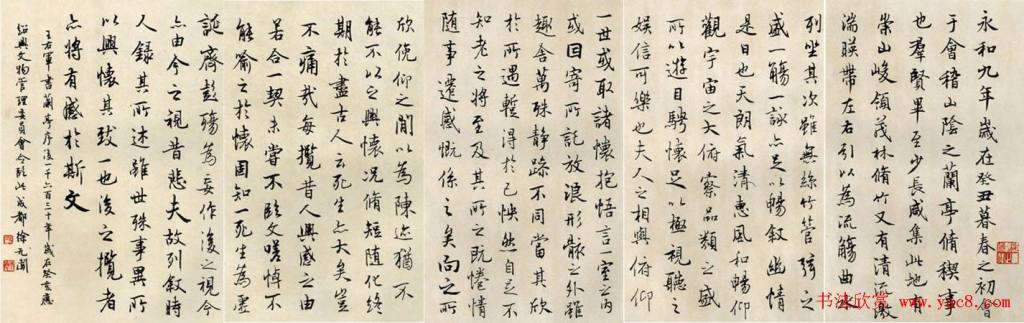 永和九年歲在癸丑暮春之初會
于會稽山陰之蘭亭脩稧事
也羣賢畢至少長咸集此地有
崇山峻領茂林脩竹又有清流激
湍暎帶左右引以為流觴曲水
列坐其次雖無絲竹管弦之
盛一觴一詠亦足以暢敘幽情
是日也天朗氣清惠風和暢仰
觀宇宙之大俯察品類之盛
所以遊目騁懷足以極視聽之
娛信可樂也夫人之相與俯仰
一世或取諸懷抱悟言一室之內
或因寄所託放浪形骸之外雖
趣舍萬殊靜躁不同當其欣
於所遇暫得於己怏然自足不
知老之將至及其所之既惓情
隨事遷感慨係之矣向之所
欣俛仰之閒以為陳迹猶不
能不以之興懷況脩短隨化終
期於盡古人云死生亦大矣豈
不痛哉每攬昔人興感之由
若合一契未嘗不臨文嗟悼不
能喻之於懷固知一死生為虛
誕齊彭殤為妄作後之視今
亦由今之視昔悲夫故列敘時
人錄其所述雖世殊事異所
以興懷其致一也後之攬者
亦將有感於斯文
王右軍書蘭亭序後一千六百三十年歲在癸亥應
紹興文物管理委員會令臨此成都徐無聞
书法欣赏 www.yac8.com